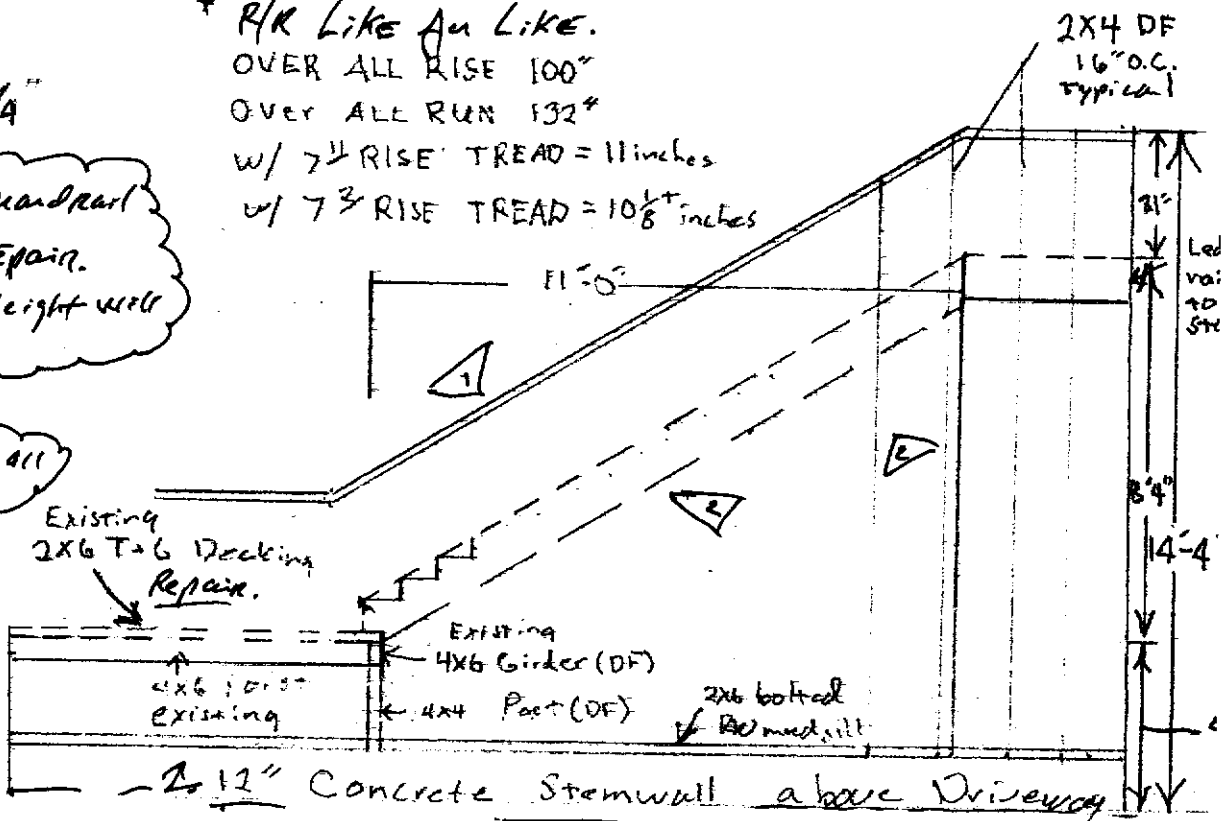 * R/R LiKE An LiKE.
OVER ALL RISE 100"
OVer ALL RUN 132"
W/ 7" RISE TREAD = 11 inches
w/ 7 3/4 RISE TREAD = 10 1/8"+ inches
/4"
Repair.
Height will
all
2X4 DF
16" O.C.
Typical
31"
11'-0"
1
2
2
4"
8'4"
14'-4
Existing
2X6 T+G Decking
Repair.
Existing
4X6 Girder (DF)
4x6 joist
existing
4x4 Post (DF)
2x6 bolted
mudsill
12" Concrete Stemwall above Driveway